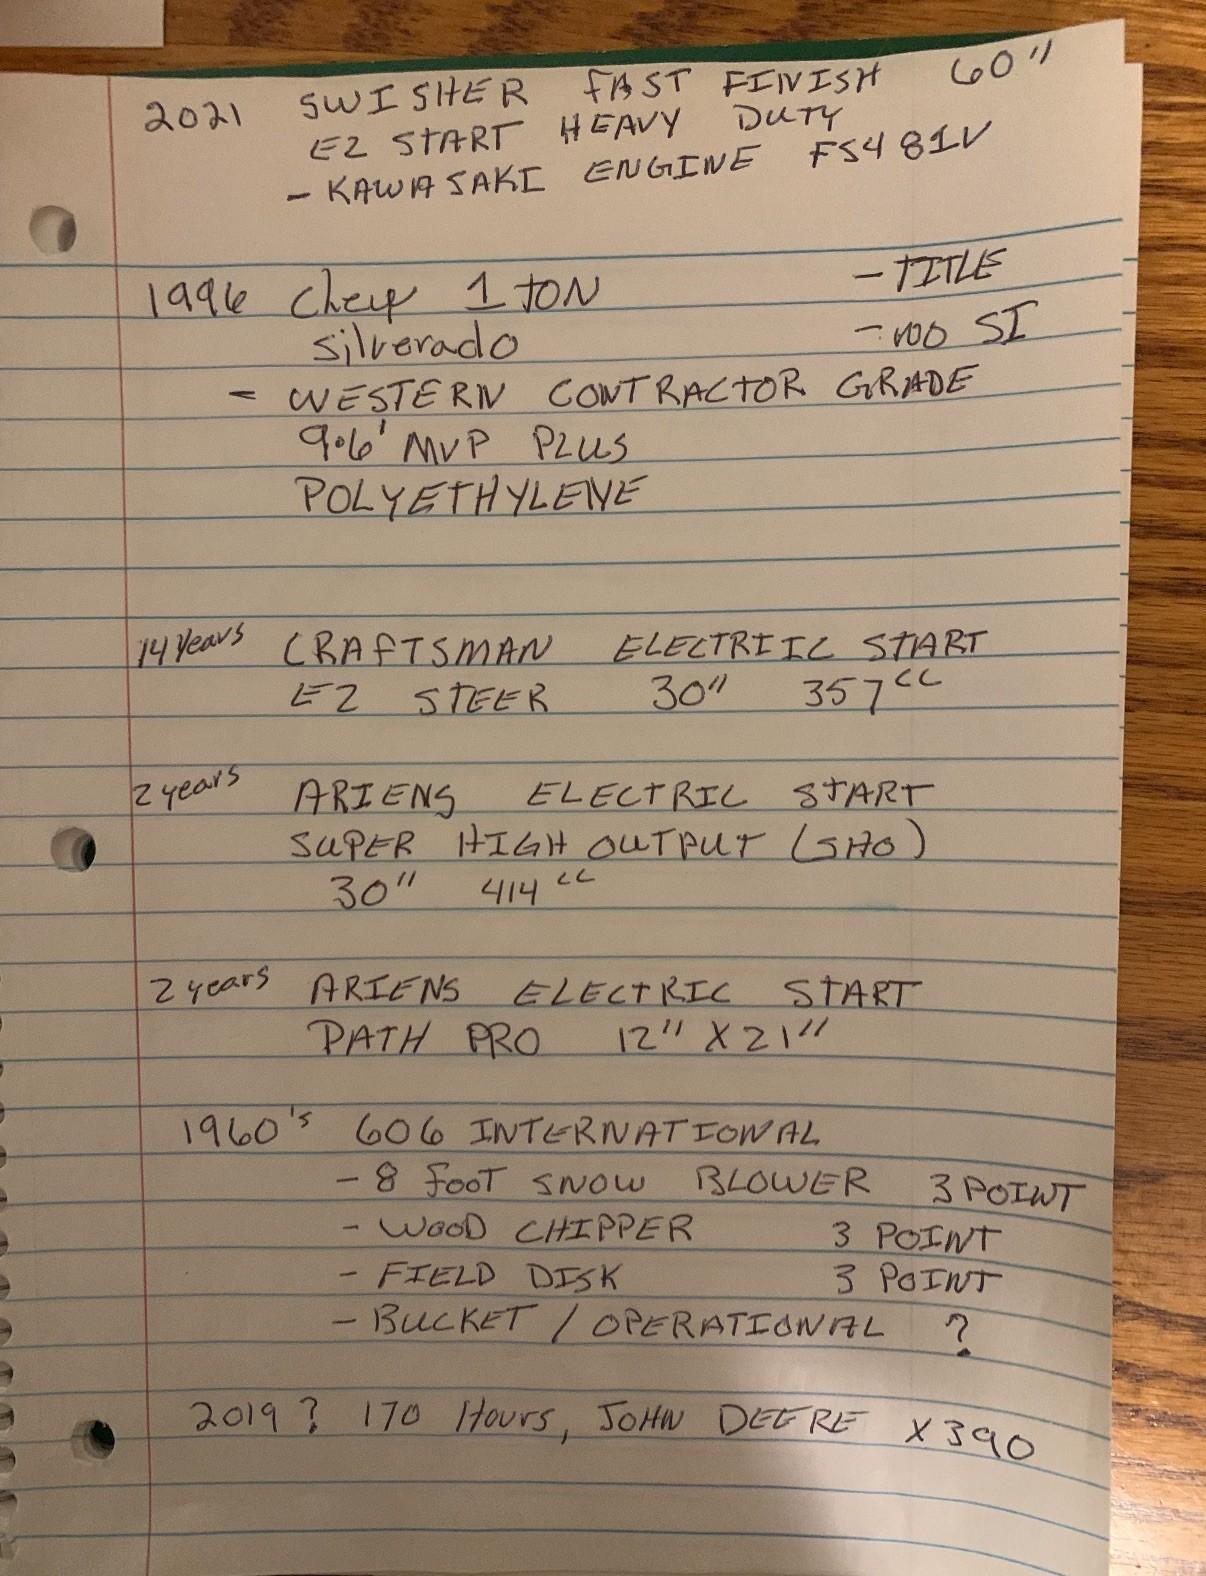 2021 SWISHER FAST FINISH 60"
EZ START HEAVY DUTY
- KAWASAKI ENGINE FS481V
1996 Chev 1 TON - TITLE
Silverado - NO SI
- WESTERN CONTRACTOR GRADE
9.6' MVP PLUS
POLYETHYLENE
14 Years CRAFTSMAN ELECTRIIC START
EZ STEER 30" 357cc
2 years ARIENS ELECTRIC START
SUPER HIGH OUTPUT (SHO)
30" 414cc
2 years ARIENS ELECTRIC START
PATH PRO 12" X 21"
1960's 606 INTERNATIONAL
- 8 FOOT SNOW BLOWER 3 POINT
- WOOD CHIPPER 3 POINT
- FIELD DISK 3 POINT
- BUCKET / OPERATIONAL ?
2019 ? 170 Hours, JOHN DEERE X390